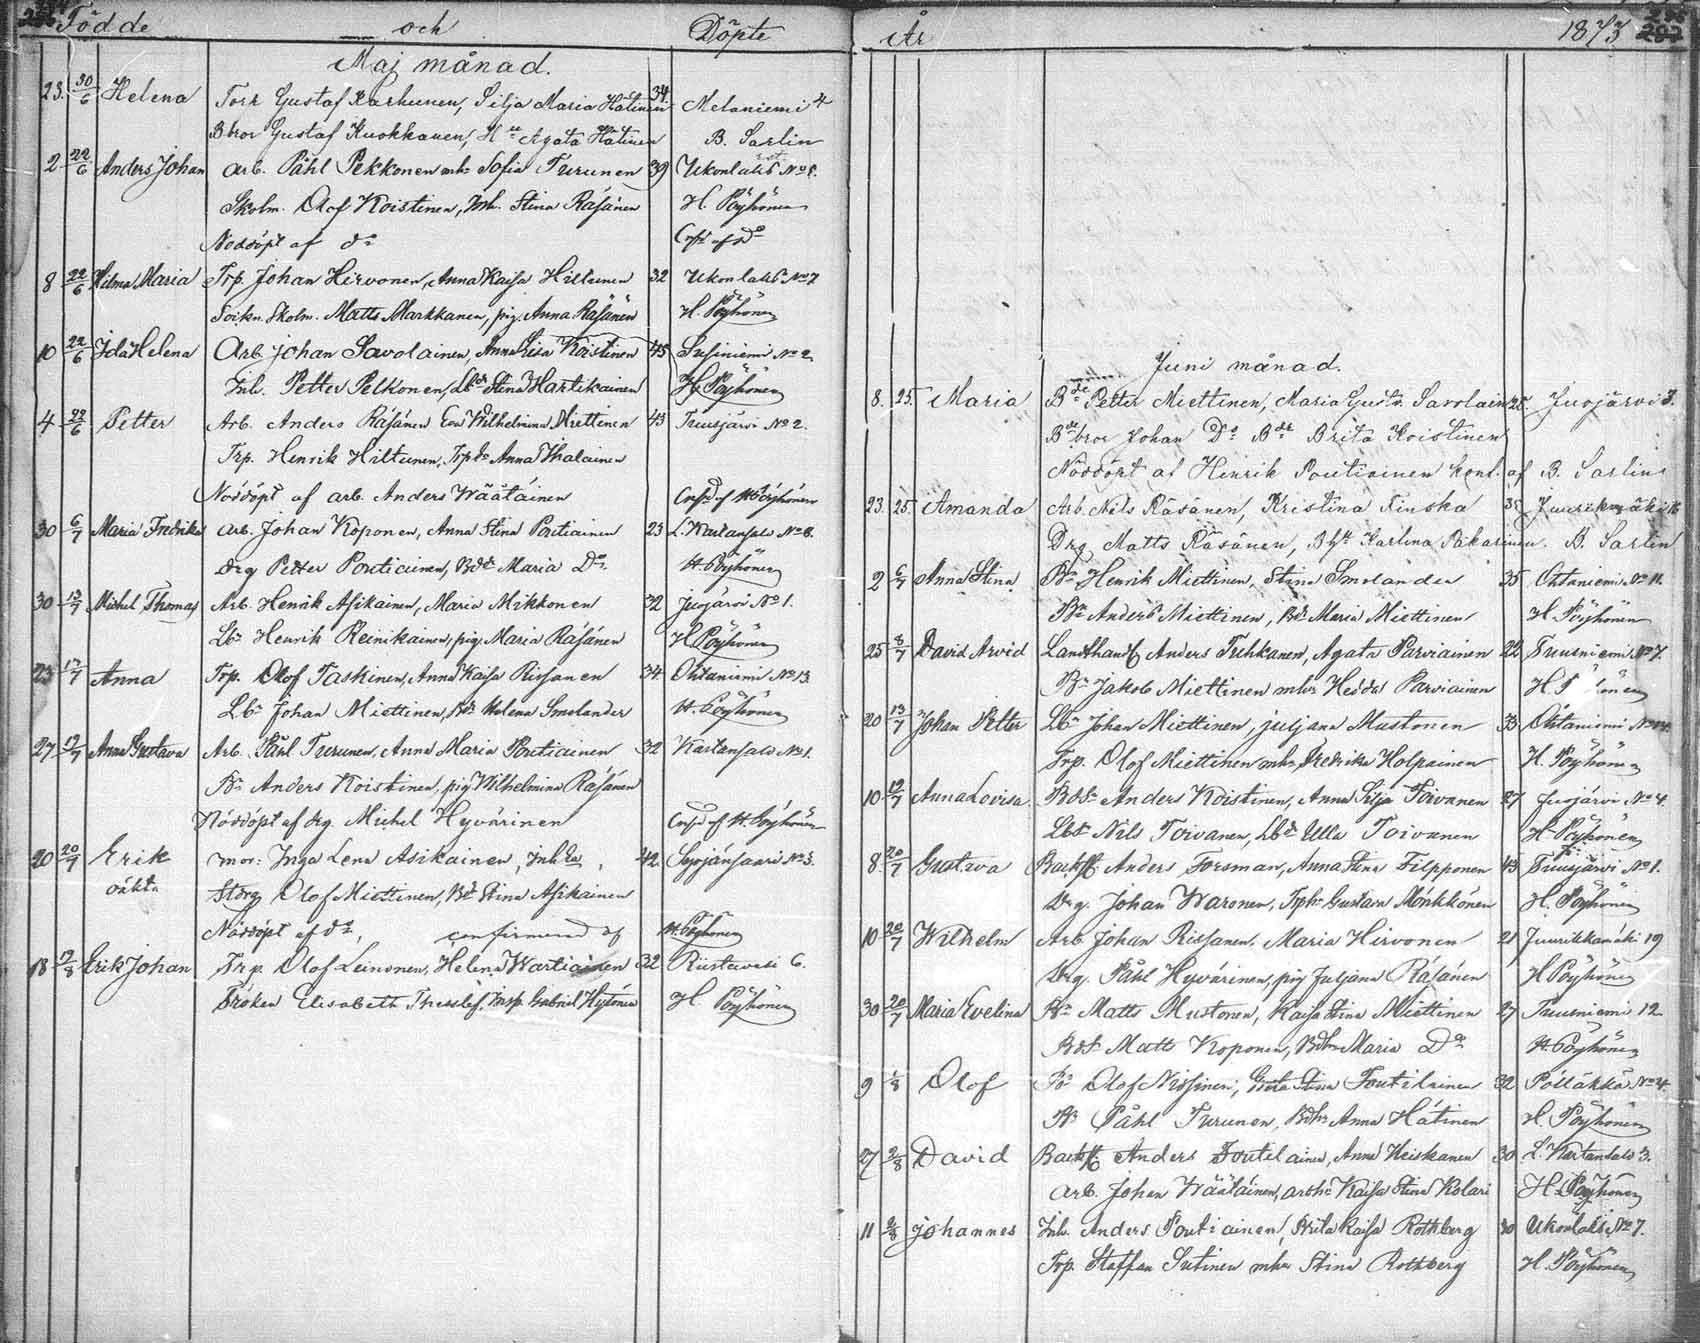 Födde och Döpte
Maj månad.
23. 30/6 Helena Torp Gustaf Karhunen, Silja Maria Hätinen 34 Melaniemi 4
Bbror Gustaf Kuokkanen, Agata Hätinen B. Sarlin
2 22/6 Anders Johan Arb. Påhl Pekkonen mhu Sofia Turunen 39 Ukonlaks No 8.
Skolm. Olof Koistinen, Inh. Stina Räsänen H. Pöyhönen
Nöddöpt af do
8 22/6 Hilma Maria Trp. Johan Hirvonen, Anna Kaisa Hiltunen 32 Ukonlaks No 7
Sockn. Skolm. Matts Markkanen, pig. Anna Räsänen H. Pöyhönen
10 22/6 Ida Helena Arb. Johan Savolainen, Anna Lisa Koistinen 45 Susiniemi No 2
Inh. Petter Pelkonen, Lbdr Stina Hartikainen H. Pöyhönen
4 22/6 Petter Arb. Anders Räsänen Eva Wilhelmina Miettinen 43 Tuusjärvi No 2.
Trp. Henrik Hiltunen, Anna Ihalainen
Nöddöpt af arb. Anders Wäätäinen Conf. af H. Pöyhönen
30 6/7 Maria Fredrika Arb. Johan Koponen, Anna Stina Poutiainen 23 L. Kartansalo No 8.
Drg Petter Poutiainen, Bdr Maria Do. H. Pöyhönen
30 13/7 Michel Thomas Arb. Henrik Asikainen, Maria Mikkonen 32 Juojärvi No 1.
Lbn Henrik Reinikainen, pig. Maria Räsänen H. Pöyhönen
23 17/7 Anna Trp. Olof Taskinen, Anna Kaisa Rissanen 34 Ohtaniemi No 13.
Lbn Johan Miettinen, Bdr Helena Smolander H. Pöyhönen
27 17/7 Anna Gustava Arb. Påhl Turunen, Anna Maria Poutiainen 32 Kartansalo No 1.
Bn Anders Koistinen, pig Wilhelmina Räsänen
Nöddöpt af drg. Michel Hyvärinen Conf. af H. Pöyhönen
20 20/7 Erik mor: Inga Lena Asikainen, 42. No 3.
oäkta Olof Miettinen, Bd Stina Asikainen
Nöddöpt af do, confirmerad af H. Pöyhönen
18 17/8 Erik Johan Trp. Olof Leinonen, Helena Wartiainen 32 Riistavesi 6.
Fröken Elisabeth Thesslef, Insp. Gabriel Hytönen H. Pöyhönen
År 1873
Juni månad.
8. 25. Maria Bde Petter Miettinen, Maria Gust. Savolain 25. Juojärvi 3.
Bdebror Johan Do Bdr Brita Koistinen
Nöddöpt af Henrik Poutiainen konf. af B. Sarlin
23. 25. Amanda Arb. Nils Räsänen, Kristina Finska 35 Juurikkamäki 16
Drg Matts Räsänen, Karlina Pakarinen. B. Sarlin
2 6/7 Anna Stina Bn Henrik Miettinen, Stina Smolander 35 Ohtaniemi No 11.
Bn Anders Miettinen, Bdr Maria Miettinen H. Pöyhönen
25 8/7 David Arvid Landthandl Anders Tuhkanen, Agata Parviainen 22 Tuusniemi No 7.
Bn Jakob Miettinen mhu Hedda Parviainen H. Pöyhönen
20 13/7 Johan Petter Lbn Johan Miettinen, Juljana Mustonen 33 Ohtaniemi No 14.
Trp. Olof Miettinen mhu Fredrika Holpainen H. Pöyhönen
10 19/7 Anna Lovisa Bdsn Anders Koistinen, Anna Silja Toivanen 27 Juojärvi No 4.
Lbdsn Nils Toivanen, Lbdr Ulla Toivanen H. Pöyhönen
8. 20/7 Gustava Anders Forsman, Anna Stina Filpponen 43 Tuusjärvi No 1.
Drg. Johan Waronen, Gustava Mönkkönen H. Pöyhönen
10 20/7 Wilhelm Arb Johan Rissanen, Maria Hirvonen 21 Juurikkamäki 19
Drg. Påhl Hyvärinen, pig Juljana Räsänen H Pöyhönen
30 20/7 Maria Evelina Bn Matts Mustonen, Kaisa Stina Miettinen 27 Tuusniemi 12
Bdsn Matts Koponen, Maria Do H. Pöyhönen
9 1/8 Olof Bn Olof Nissinen, Greta Stina Toutilainen 32 Pölläkkä No 4.
Bn Påhl Turunen, Anna Hätinen H. Pöyhönen
27 2/8 David Anders Toutilainen, Anna Heiskanen 30 L. Kartansalo 3.
Arb. Johan Wäätäinen, arbhu Kaisa Stina Kolari H. Pöyhönen
11 2/8 Johannes Inh. Anders Poutiainen, Brita Kaisa Rothberg 30 Ukonlaks No 7.
Trp. Staffan Sutinen mhu Stina Rothberg H. Pöyhönen